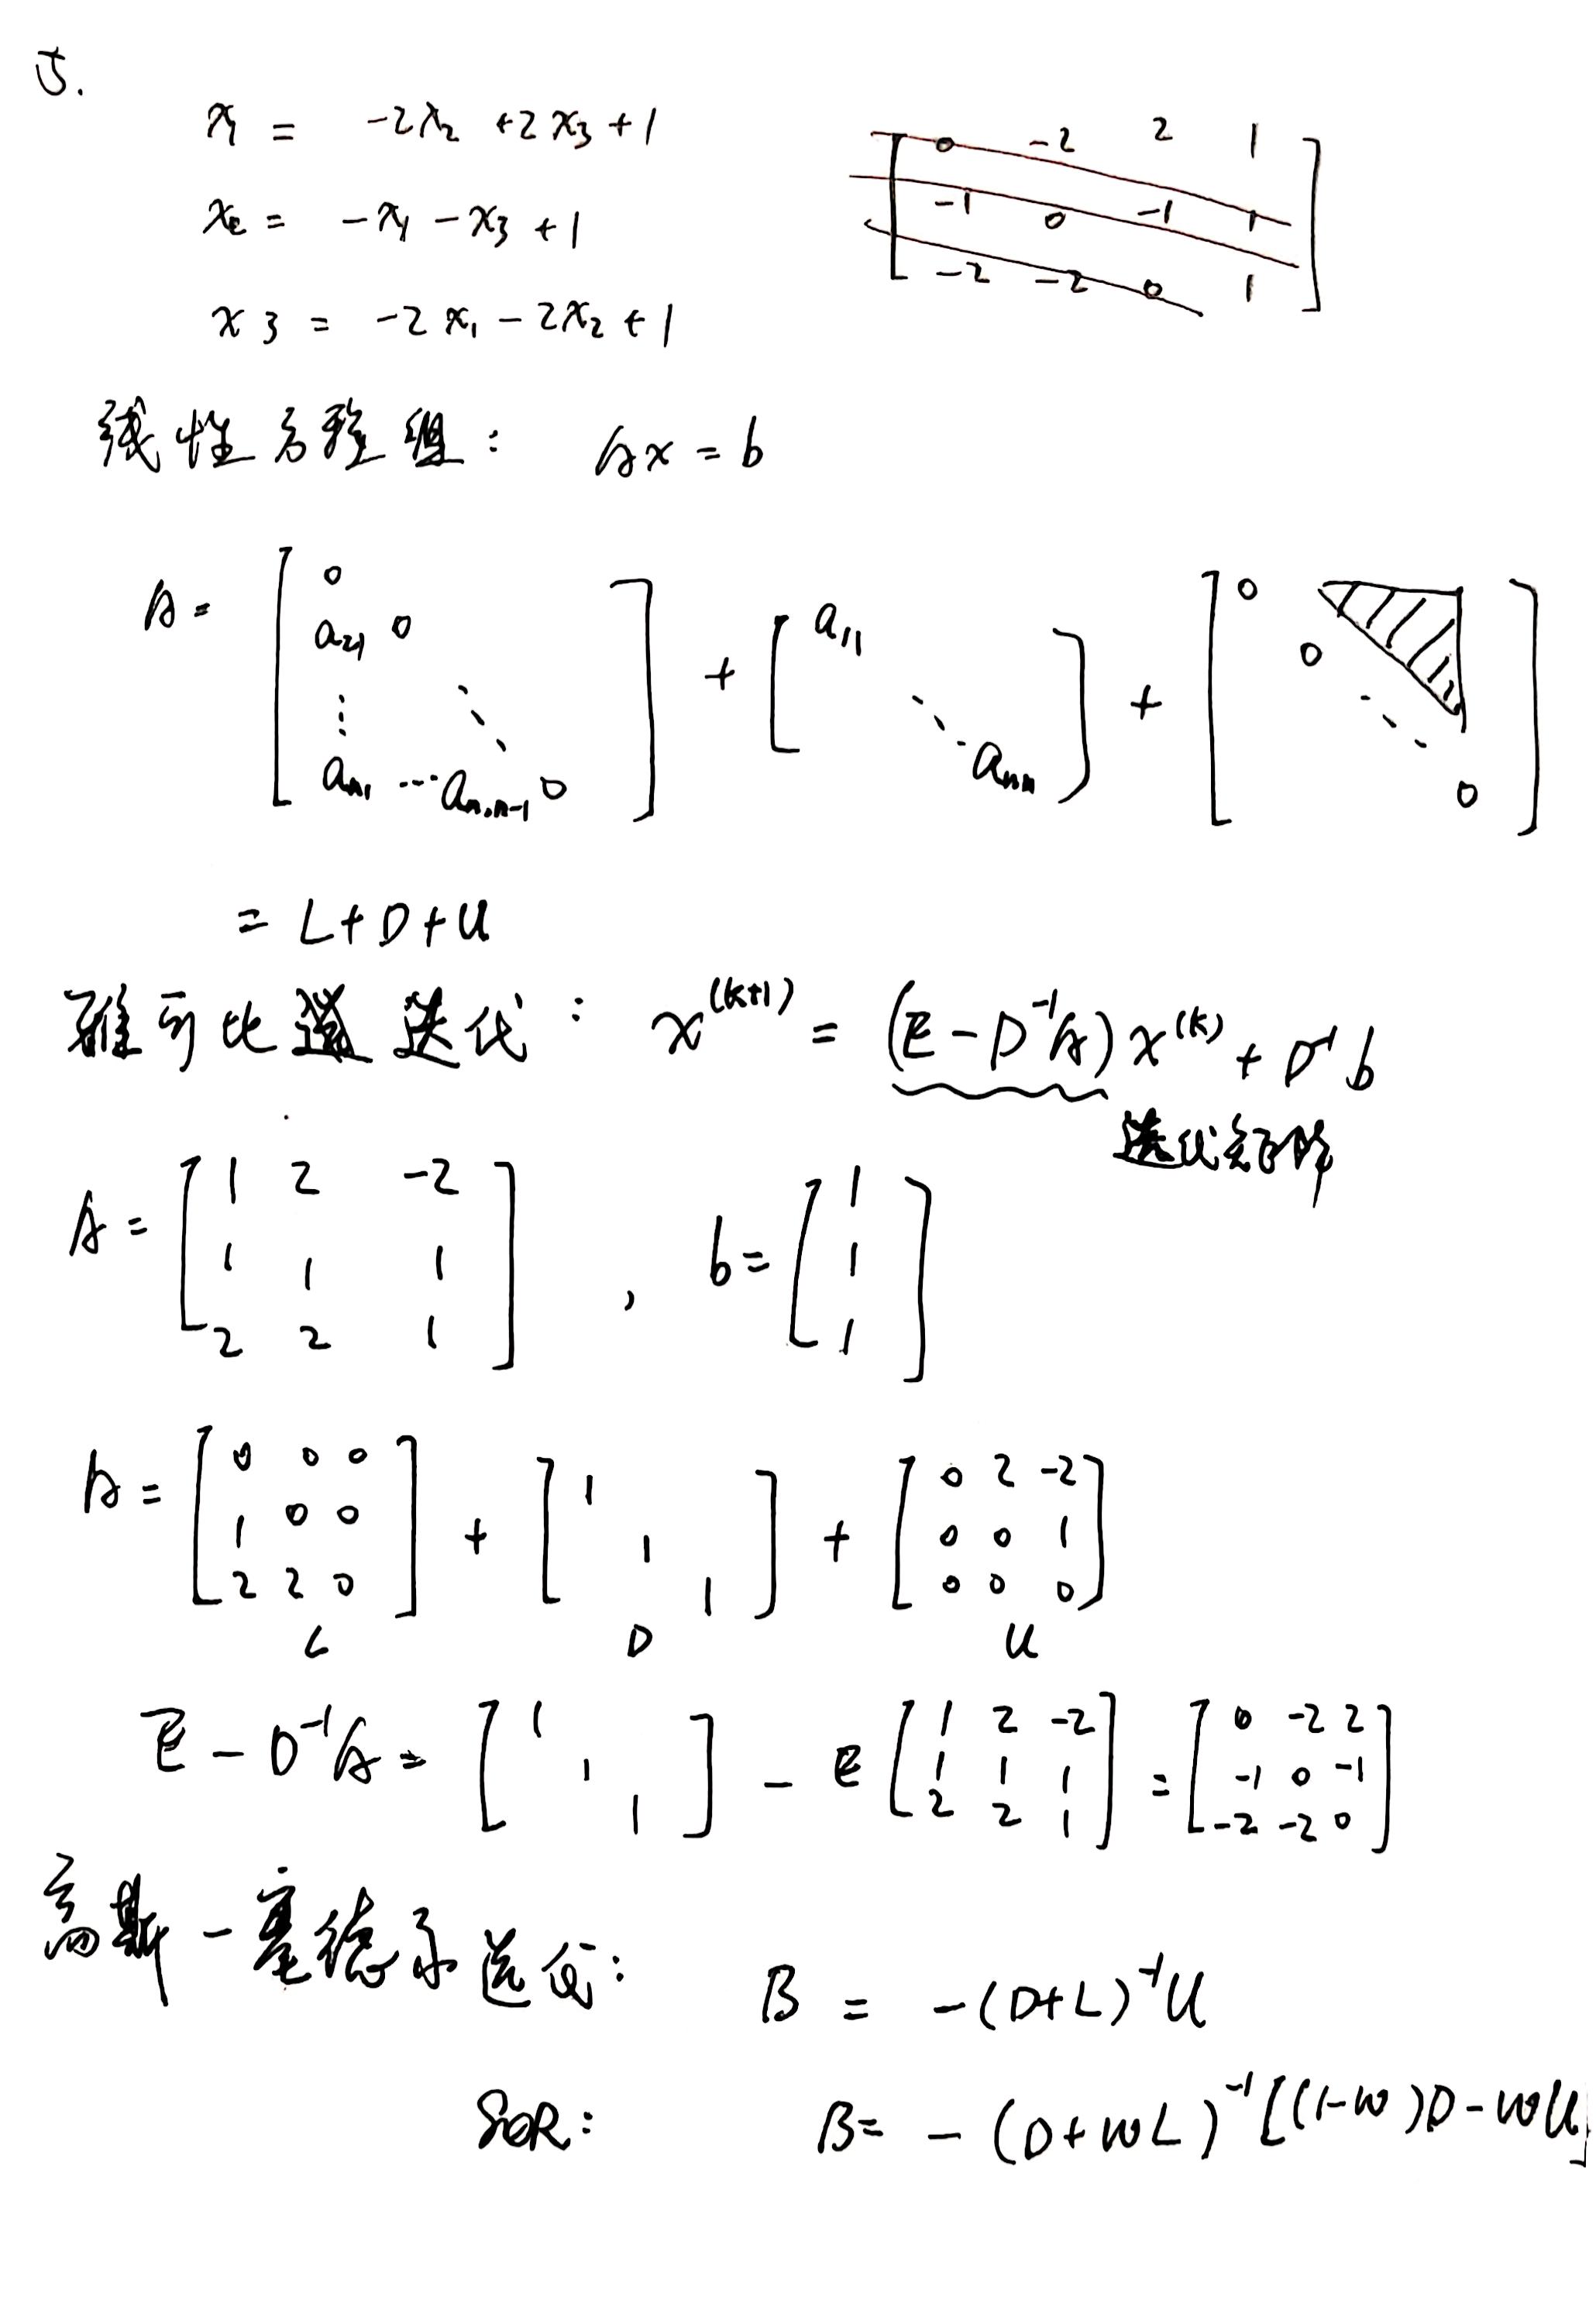 5.
x₁ = -2x₂ +2x₃+1
x₂ = -x₁ -x₃ +1
x3 = -2x₁ -2x₂ +1
0 -2 2 1
-1 0 -1 1
-2 -2 0 1
线性方程组: Ax = b
A = [0 a₂₁ 0 ⋮ ⋱ aₙ₁ … aₙ,ₙ₋₁ 0] + [a₁₁ ⋱ aₙₙ] + [0 0 ⋱ 0]
= L+D+U
雅可比迭代: x^(k+1) = (E - D⁻¹A) x^(k) + D⁻¹b
迭代矩阵
A = [1 2 -2; 1 1 1; 2 2 1] , b = [1; 1; 1]
A = [0 0 0; 1 0 0; 2 2 0] + [1 1 1] + [0 2 -2; 0 0 1; 0 0 0]
L D U
E - D⁻¹A = [1 1 1] - E [1 2 -2; 1 1 1; 2 2 1] = [0 -2 2; -1 0 -1; -2 -2 0]
高斯-塞德尔迭代: B = -(D+L)⁻¹U
SOR: B = - (D+wL)⁻¹[(1-w)D-wU]